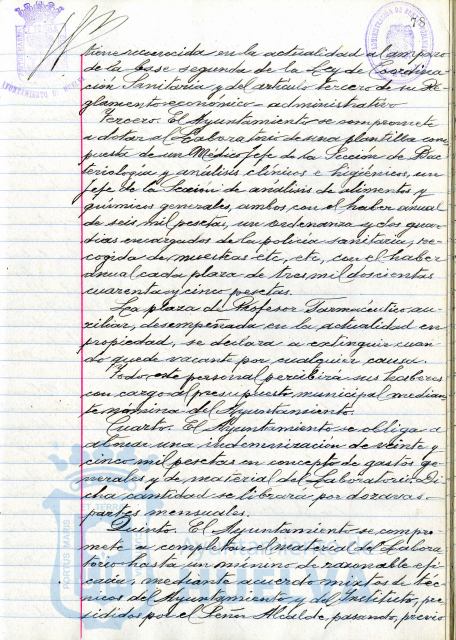 78
tiene reconocida en la actualidad al amparo
de la base segunda de la Ley de Coordina-
ción Sanitaria y del artículo tercero de su Re-
glamento económico-administrativo
Tercero. El Ayuntamiento se compromete
a dotar al Laboratorio de una plantilla com-
puesta de un Médico Jefe de la Sección de Bac-
teriología y análisis clínicos e higiénicos, un
jefe de la Sección de análisis de alimentos y
químicos generales, ambos con el haber anual
de seis mil pesetas, un ordenanza y dos guar-
dias encargados de la policía sanitaria, re-
cogida de muestras etc, etc, con el haber
anual cada plaza de tres mil doscientas
cuarenta y cinco pesetas.
La plaza de Profesor Farmacéutico au-
xiliar, desempeñada en la actualidad en
propiedad, se declara a extinguir cuan-
do quede vacante por cualquier causa.
Todo este personal percibirá sus haberes
con cargo al presupuesto municipal median-
te nómina del Ayuntamiento.
Cuarto. El Ayuntamiento se obliga a
abonar una indemnización de veinte y
cinco mil pesetas en concepto de gastos ge-
nerales y de material del Laboratorio. Di-
cha cantidad se librará por dozavas
partes mensuales.
Quinto. El Ayuntamiento se compro-
mete a completar el material del Labora-
torio hasta un mínimo de razonable efi-
cacia, mediante acuerdo mixto de téc-
nicos del Ayuntamiento y del Instituto, pre-
sididos por el Señor Alcalde, pasando, previo
PORTUS MARIS